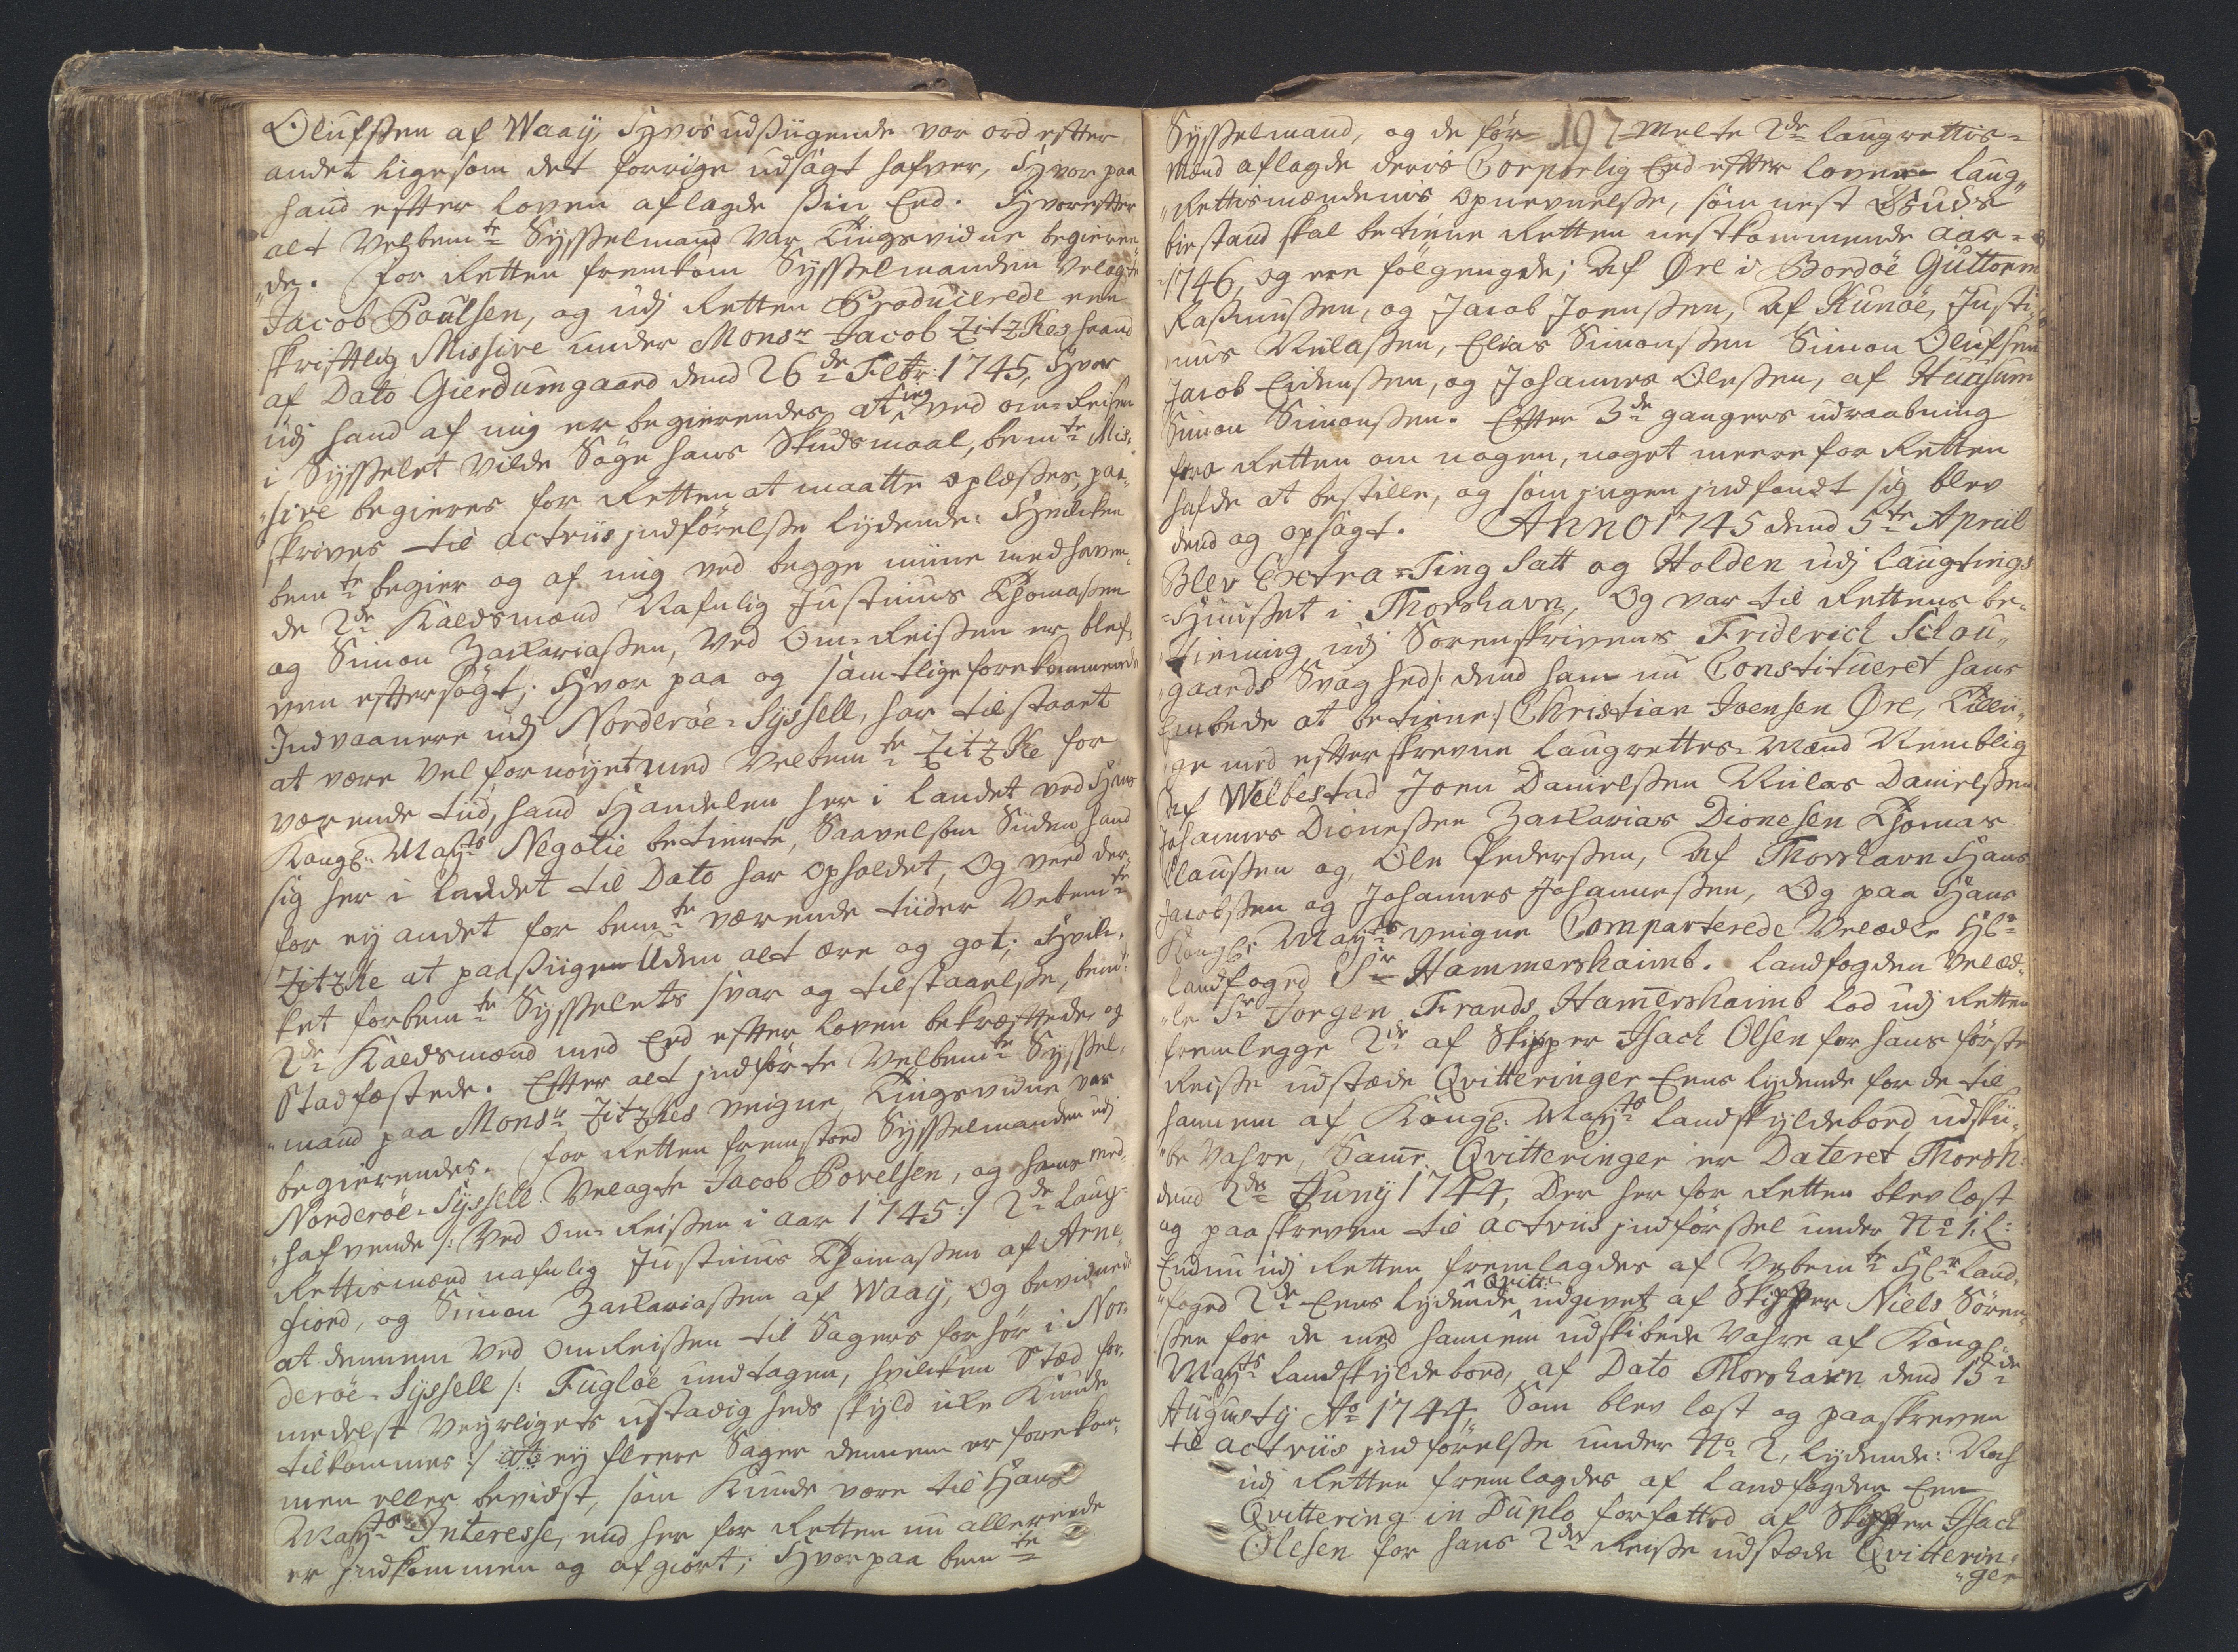 Olufsen af Waaÿ, Hvis udsiigende var ord efter
andet ligesom det forrige udsagt hafver, Hvor paa
hand efter loven aflagde sin Eed. Hvorefter
alt Velbemte Sysselmand var Tingsvidne begieren-
de. For Retten fremkom Sysselmanden Velagte
Jacob Poulsen, og udj Retten Producerede een
skrifftlig Missive under Monsr Jacob Zitzkes haand
af Dato Gierdumgaard dend 26de Febr: 1745, Hvor
udj hand af mig er begierendes at jeg ved om-Reisen
i Sysselet vilde Søge hans Skudsmaal, bemte Mis-
sive begieres for Retten at maatte oplæses, paa-
skrives til actriis jndførelse lydende: Hvilken
bemte begier og af mig ved begge mine medhaven-
de 2de Kaldsmænd Nafnlig Justinus Thomassen
og Simon Zachariassen, ved Om-Reisen er blef-
ven eftersøgt; Hvor paa og samtlige forekommende
Indvaanere udj Norderöe-Sÿssell, har tilstaaet
at være vel fornöyet med Velbemte Zitzke for
værende tiid, hand Handelen her i Landet ved Hans
Kongl: Mayts Negotie betiente, Saavelsom Siiden hand
sig her i landet til Dato har opholdet, Og veed der-
for ey andet for bemte værende tiider Velbemte
Zitzke at paasiige Uden alt ære og got; Hvil-
ket forbemte Sysselets svar og tilstaaelse, bemte
2de Kaldsmænd med Eed efter loven bekræftede og
Stadfæstede. Efter alt jndførte Velbemte Syssel-
mand paa Monsr Zitzkes veigne Tingsvidne var
begierendes. For Retten fremstoed Sysselmanden udj
Norderöe-Sÿssell Velagte Jacob Povelsen, og hans med-
hafvende /: Ved Om-Reisen i aar 1745 :/ 2de Laug-
Rettismænd nafnlig Justinus Thomassen af Arne-
fiord, og Simon Zachariassen af Waaÿ, Og bevidnede
at dennem ved Omreisen til Sagers forhør i Nor-
deröe-Sÿssell /: Fuglöe undtagen, hvilken Stæd for-
medelst Veyrligets ustadigheds skyld icke Kunde
tilkommes :/ at ey fleere Sager dennem er forekom-
men eller bevidst, som Kunde være til Hans
Mayts Interesse, end her for Retten nu allereede
er jndkommen og afgiort; Hvorpaa bemte
197
Sysselmand, og de før-melte 2de laugrettis-
Mænd aflagde deris Corporlig Eed efter loven laug-
Rettismændenis opnevnelse, som nest Guds
biestand skal betiene Retten nestkommende aar
1746, og ere fölgengde; Af Øre i Bordöe Guttorm
Rasmussen, og Jacob Joensen, Af Kunöe, Justi-
nus Niclassen, Elias Simonsen Simon Olufsen
Jacob Eidensen, og Johannes Olesen, af Huusum
Simon Simonsen. Efter 3de gangers udraabning
fra Retten om nogen, noget meere for Retten
hafde at bestille, og som jngen jndfandt sig, blev
dend og opsagt. Anno 1745 dend 5te Apriil
Blev Extra-Ting Satt og Holden udj Laugtings
Huuset i Thorshavn, Og var til Rettens be-
tiening udj Sorenskrivens Friderich Schou-
gaards Svaghed /: dend ham nu Constitueret hans
Embede at betiene :/ Christian Joensen Øre, Tillii-
ge med efterskrevne laugrettes-Mænd Nemblig
Af Welbestad Joen Danielsen Niclas Danielsen
Johannes Dionesen Zacharias Dionesen Thomas
Clausen og Ole Pedersen, Af Thorshavn Hans
Jacobsen og Johannes Johannesen, Og paa Hans
Kongl: Mayts veigne Comparterede Velædle Hr
Landfoged Sr Hammershaimb. Landfogden Velæd-
le Sr Jorgen Frands Hamershaimb lod udj Retten
fremlegge 2de af Skipper Jsach Olsen for hans förste
Reise udstæde Qvitteringer Eens lydende for de til
hannem af Kongl: Mayts Landskyldebord, udski-
be Vahre, Samme Qvitteringer er Dateret Thorsh:
dend 2den Juny 1744, Der her for Retten blev læst
og paaskreven til actriis jndførsel under No 1. L:
Endnu udj Retten fremlagdes af Velbemte Hr Land-
foged 2de Eens lydende Qvitt: udgivet af Skipper Niels Sören-
sen for de med hannem udskibede Vahre af Kongl:
Mayts Landskyldebord, af Dato Thorshavn dend 15de
Augustÿ Ao 1744, Som blev læst og paaskreven
til actriis jndførelse under No 2, lydende: Noch
udj Retten fremlagdes af Landfogden Een
Qvittering in Duplo forfatted af Skipper Jsach
Olesen for hans 2den Reise udstæde Qvitterin-
ger